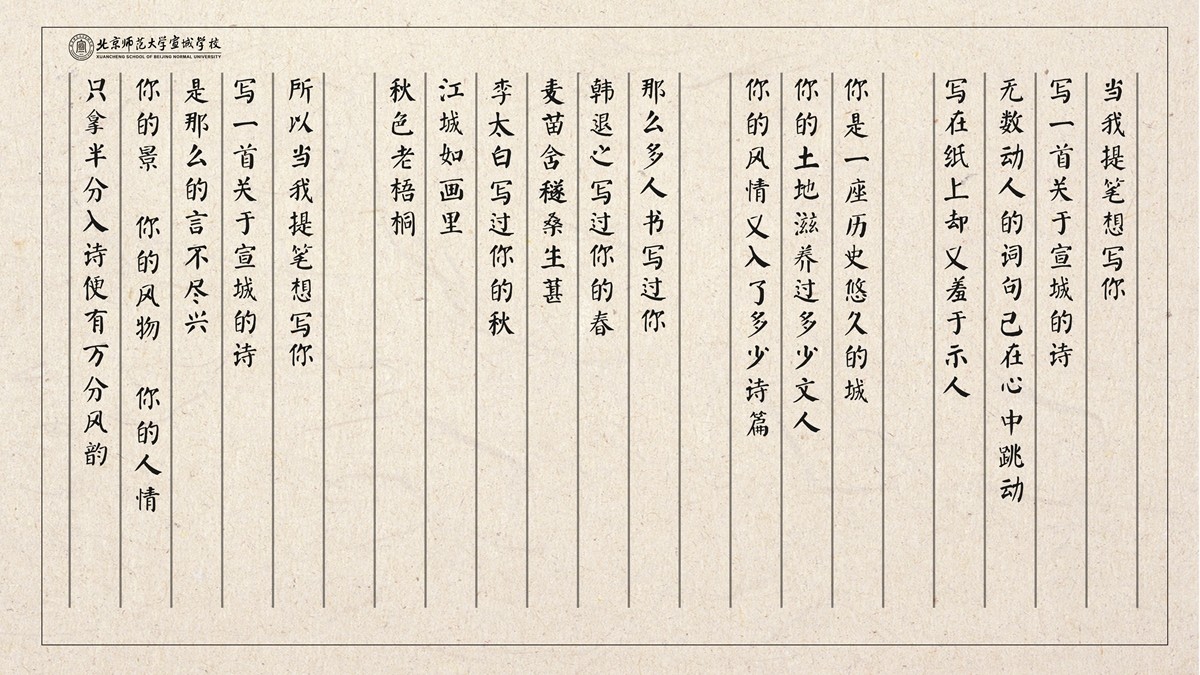 北京师范大学宣城学校
XUANCHENG SCHOOL OF BEIJING NORMAL UNIVERSITY
当我提笔想写你
写一首关于宣城的诗
无数动人的词句已在心中跳动
写在纸上却又羞于示人
你是一座历史悠久的城
你的土地滋养过多少文人
你的风情又入了多少诗篇
那么多人书写过你
韩退之写过你的春
麦苗含穟桑生葚
李太白写过你的秋
江城如画里
秋色老梧桐
所以当我提笔想写你
写一首关于宣城的诗
是那么的言不尽兴
你的景 你的风物 你的人情
只拿半分入诗便有万分风韵